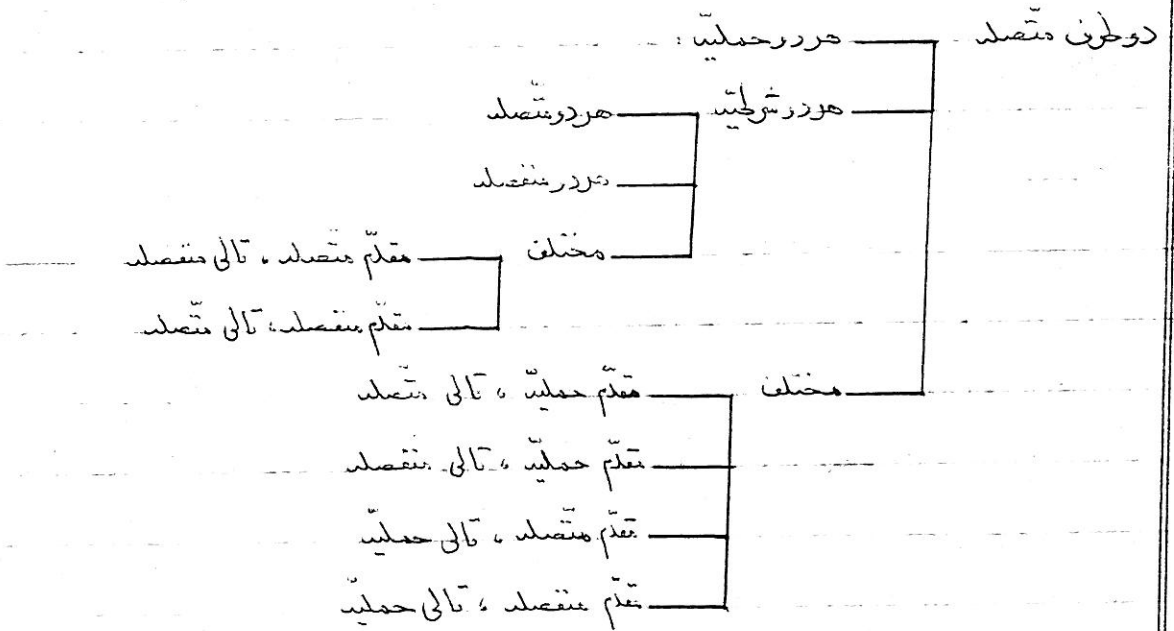 دو طرف متّصله هر دو حملیّه :
هر دو شرطیّه هر دو متّصله
هر دو منفصله
مختلف مقدّم متّصله ، تالی منفصله
مقدّم منفصله ، تالی متّصله
مختلف مقدّم حملیّه ، تالی متّصله
مقدّم حملیّه ، تالی منفصله
مقدّم متّصله ، تالی حملیّه
مقدّم منفصله ، تالی حملیّه